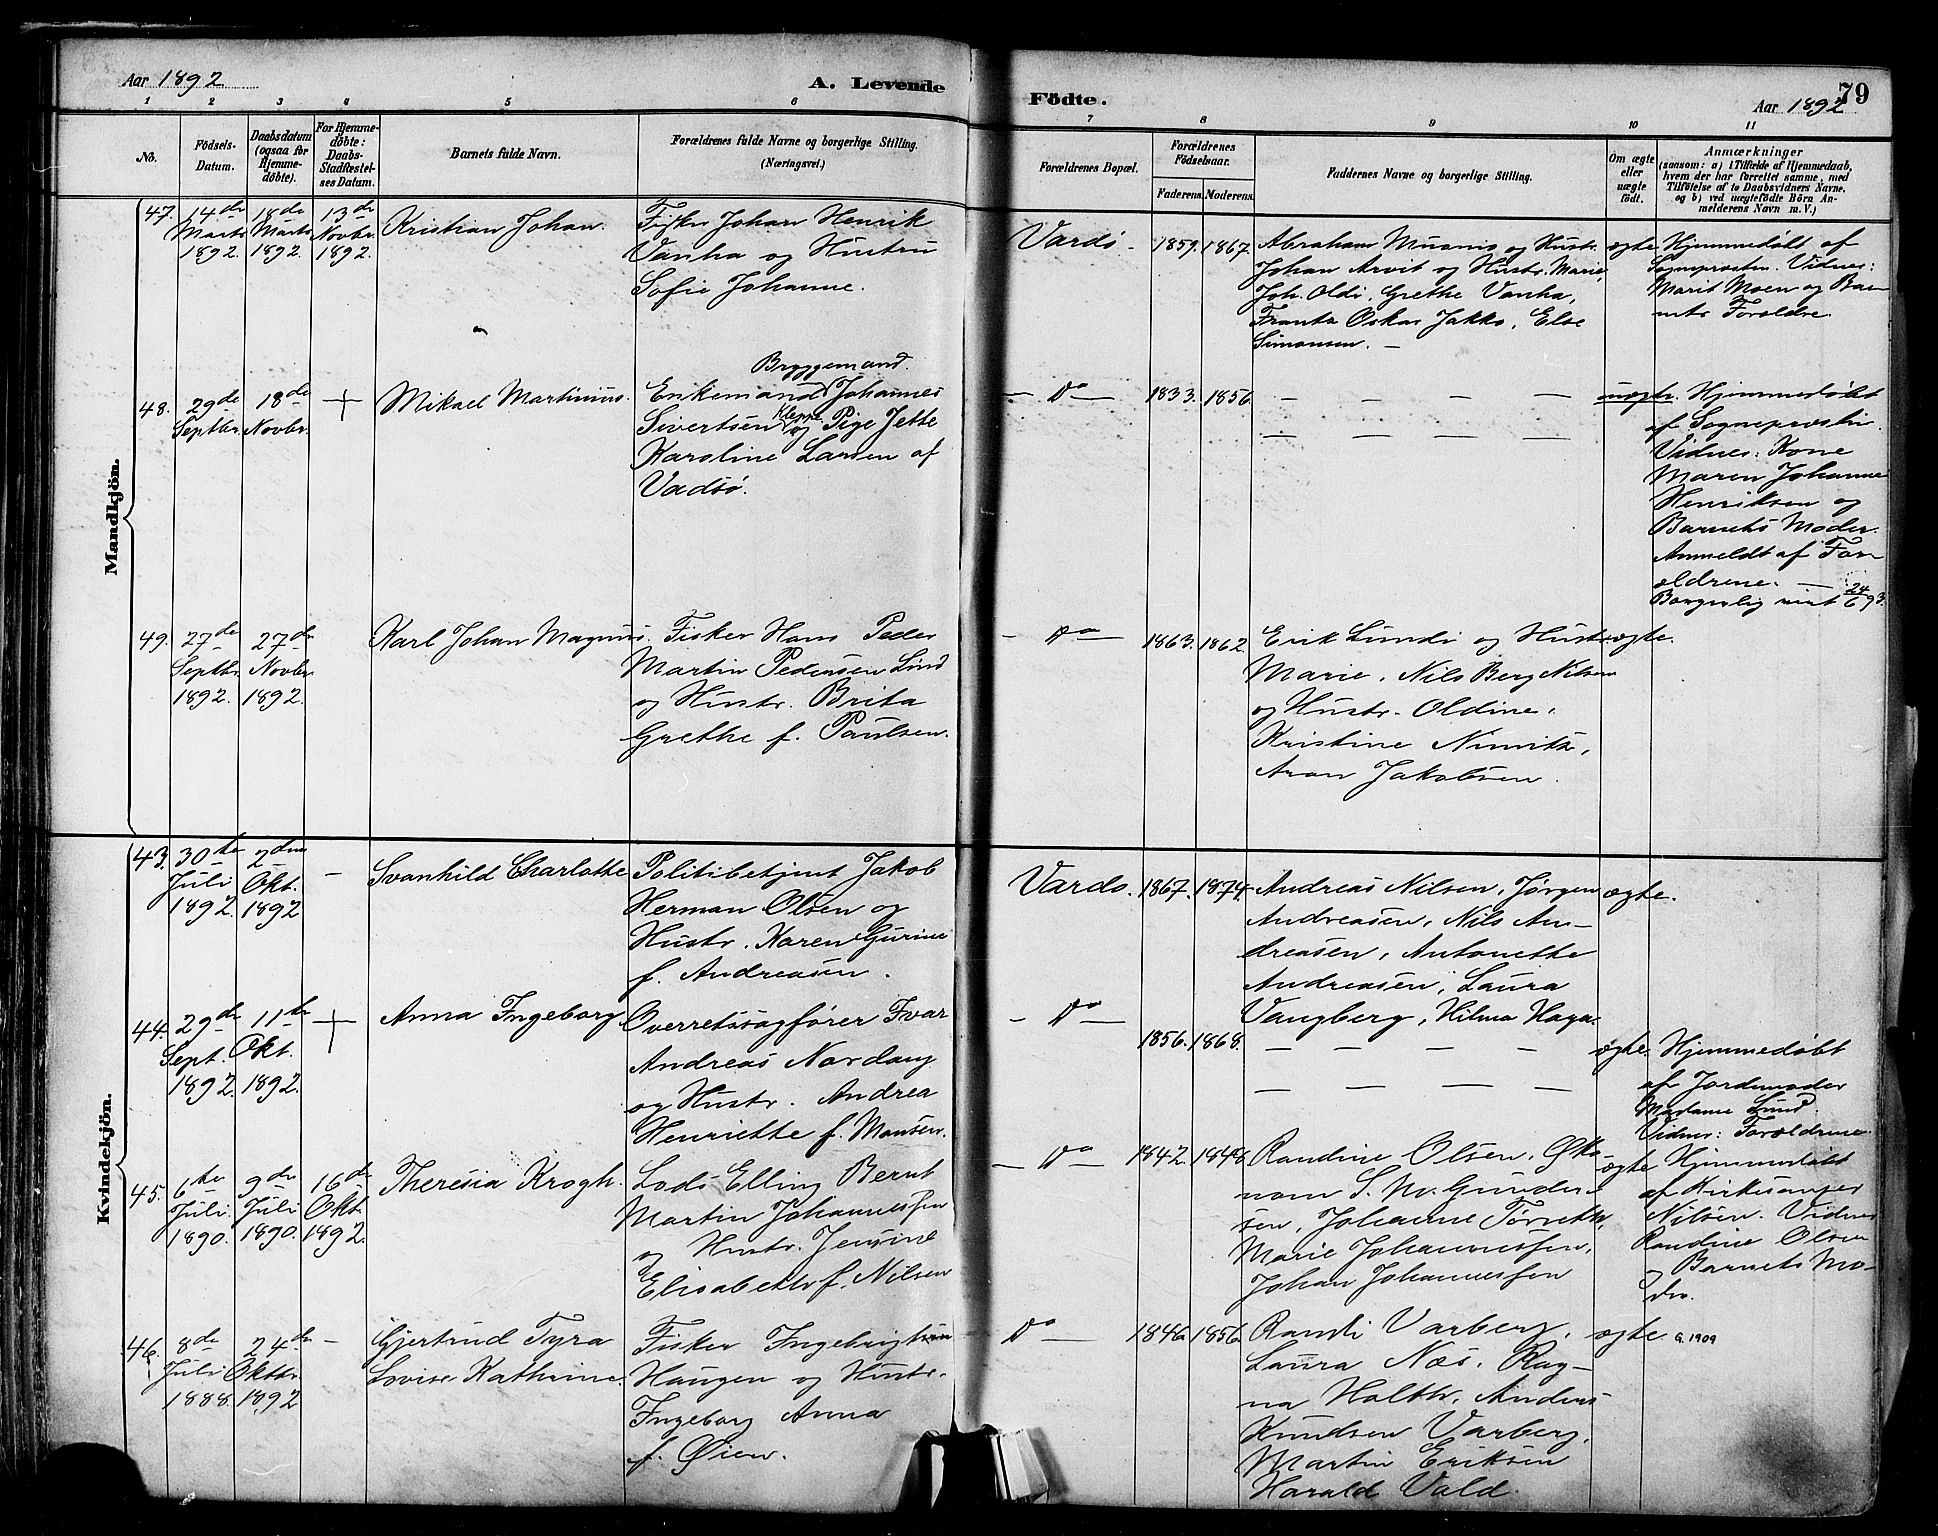 Aar 1892
A. Levende
1 2 3 4 5 6
No.
Födsels-
Datum.
Daabsdatum
(ogsaa for
Hjemme-
döbte).
For Hjemme-
döbte:
Daabs-
Stadfæstel-
ses Datum.
Barnets fulde Navn.
Forældrenes fulde Navne og borgerlige Stilling.
(Næringsvei.)
Födte.
Aar 1892
79
7 8 9 10 11
Forældrenes Bopæl.
Forældrenes
Födselsaar.
Faderens. Moderens.
Faddernes Navne og borgerlige Stilling.
Om ægte
eller
uægte
födt.
Anmærkninger
(saasom: a) i Tilfælde af Hjemmedaab,
hvem der har forrettet samme, med
Tilföielse af to Daabsvidners Navne.
og b) ved uægtefödte Börn An-
melderens Navn m. V.)
Mandkjön.
47.
14de
Marts
1892.
18de
Marts
1892.
13de
Novbr.
1892.
Kristian Johan.
Fisker Johan Henrik
Vanha og Hustru
Sofie Johanne.
Vardø.
1859. 1867.
Abraham Muanis og Hustr.
Johan Arvit og Hustr. Marie,
Joh. Oldi, Grethe Vanha,
Frantz Oskar Jakko, Else
Simonsen. —
ægte.
Hjemmedøbt af
Sogneprosten. Vidner:
Marit Moen og Bar-
nets Forældre.
48.
29de
Septbr.
18de
Novbr.
+
Mikael Martinius.
Bryggemand.
Enkemand Johannes
Sivertsen Kleppe og Pige Jette
Karoline Larsen af
Vadsø.
— Do —
1833. 1856.
— — — —
— — — —
uægte.
Hjemmedøbt
af Sogneprosten.
Vidner: Kone
Maren Johanne
Henriksen og
Barnets Moder.
Anmeldt af For-
ældrene. —
Borgerlig viet 24/6 93.
49.
27de
Septbr.
1892.
27de
Novbr.
1892.
Karl Johan Magnus.
Fisker Hans Peder
Martin Pedersen Lind
og Hustr. Brita
Grethe f. Paulsen.
— Do —
1863. 1862.
Erik Lundi og Hustr.
Marie, Nils Berg Nilsen
og Hustr. Oldine,
Kristine Nimits,
Aron Jakobsen.
ægte.
Kvindekjön.
43.
30te
Juli
1892.
2den
Okt.
1892
—
Svanhild Charlotte
Politibetjent Jakob
Herman Olsen og
Hustr. Karen Gurine
f. Andreasen.
Vardø.
1867. 1874.
Andreas Nilsen, Jørgen
Andreasen, Nils An-
dreasen, Antonette
Andreasen, Laura
Vangberg, Hilma Haga.
ægte.
44.
29de
Sept.
1892.
11te
Okt.
1892.
+
Anna Ingeborg
Overretssagfører Ivar
Andreas Nordang
og Hustr. Andrea
Henriette f. Monsen.
— Do —
1856. 1868.
— — — —
— — — —
ægte.
Hjemmedøbt
af Jordemoder
Madame Lund.
Vidner: Forældrene
45.
6te
Juli
1890.
9de
Juli
1890.
16de
Okt.
1892.
Theresia Krogh.
Lods Elling Bernt
Martin Johannessen
og Hustr. Jensine
Elisabeth f. Nilsen
— Do —
1842. 1848.
Randine Olsen, Øko-
nom S. M. Gunder-
sen, Johanne Torseth,
Marie Johannessen,
Johan Johannessen
ægte
Hjemmedøbt
af Kirkesanger
Nilsen. Vidner
Randine Olsen
og Barnets Mo-
der.
46.
8de
Juli
1888.
24de
Oktbr.
1892
—
Gjertrud Tyra
Lovise Kathrine.
Fisker Ingebrigtsen
Haugen og Hustr.
Ingeborg Anna
f. Øien.
Do —
1846. 1856.
Randi Varberg,
Laura Næs, Rag-
na Holth, Anders
Knudsen Varberg,
Martin Eriksen
Harald Vold.
ægte
G. 1909